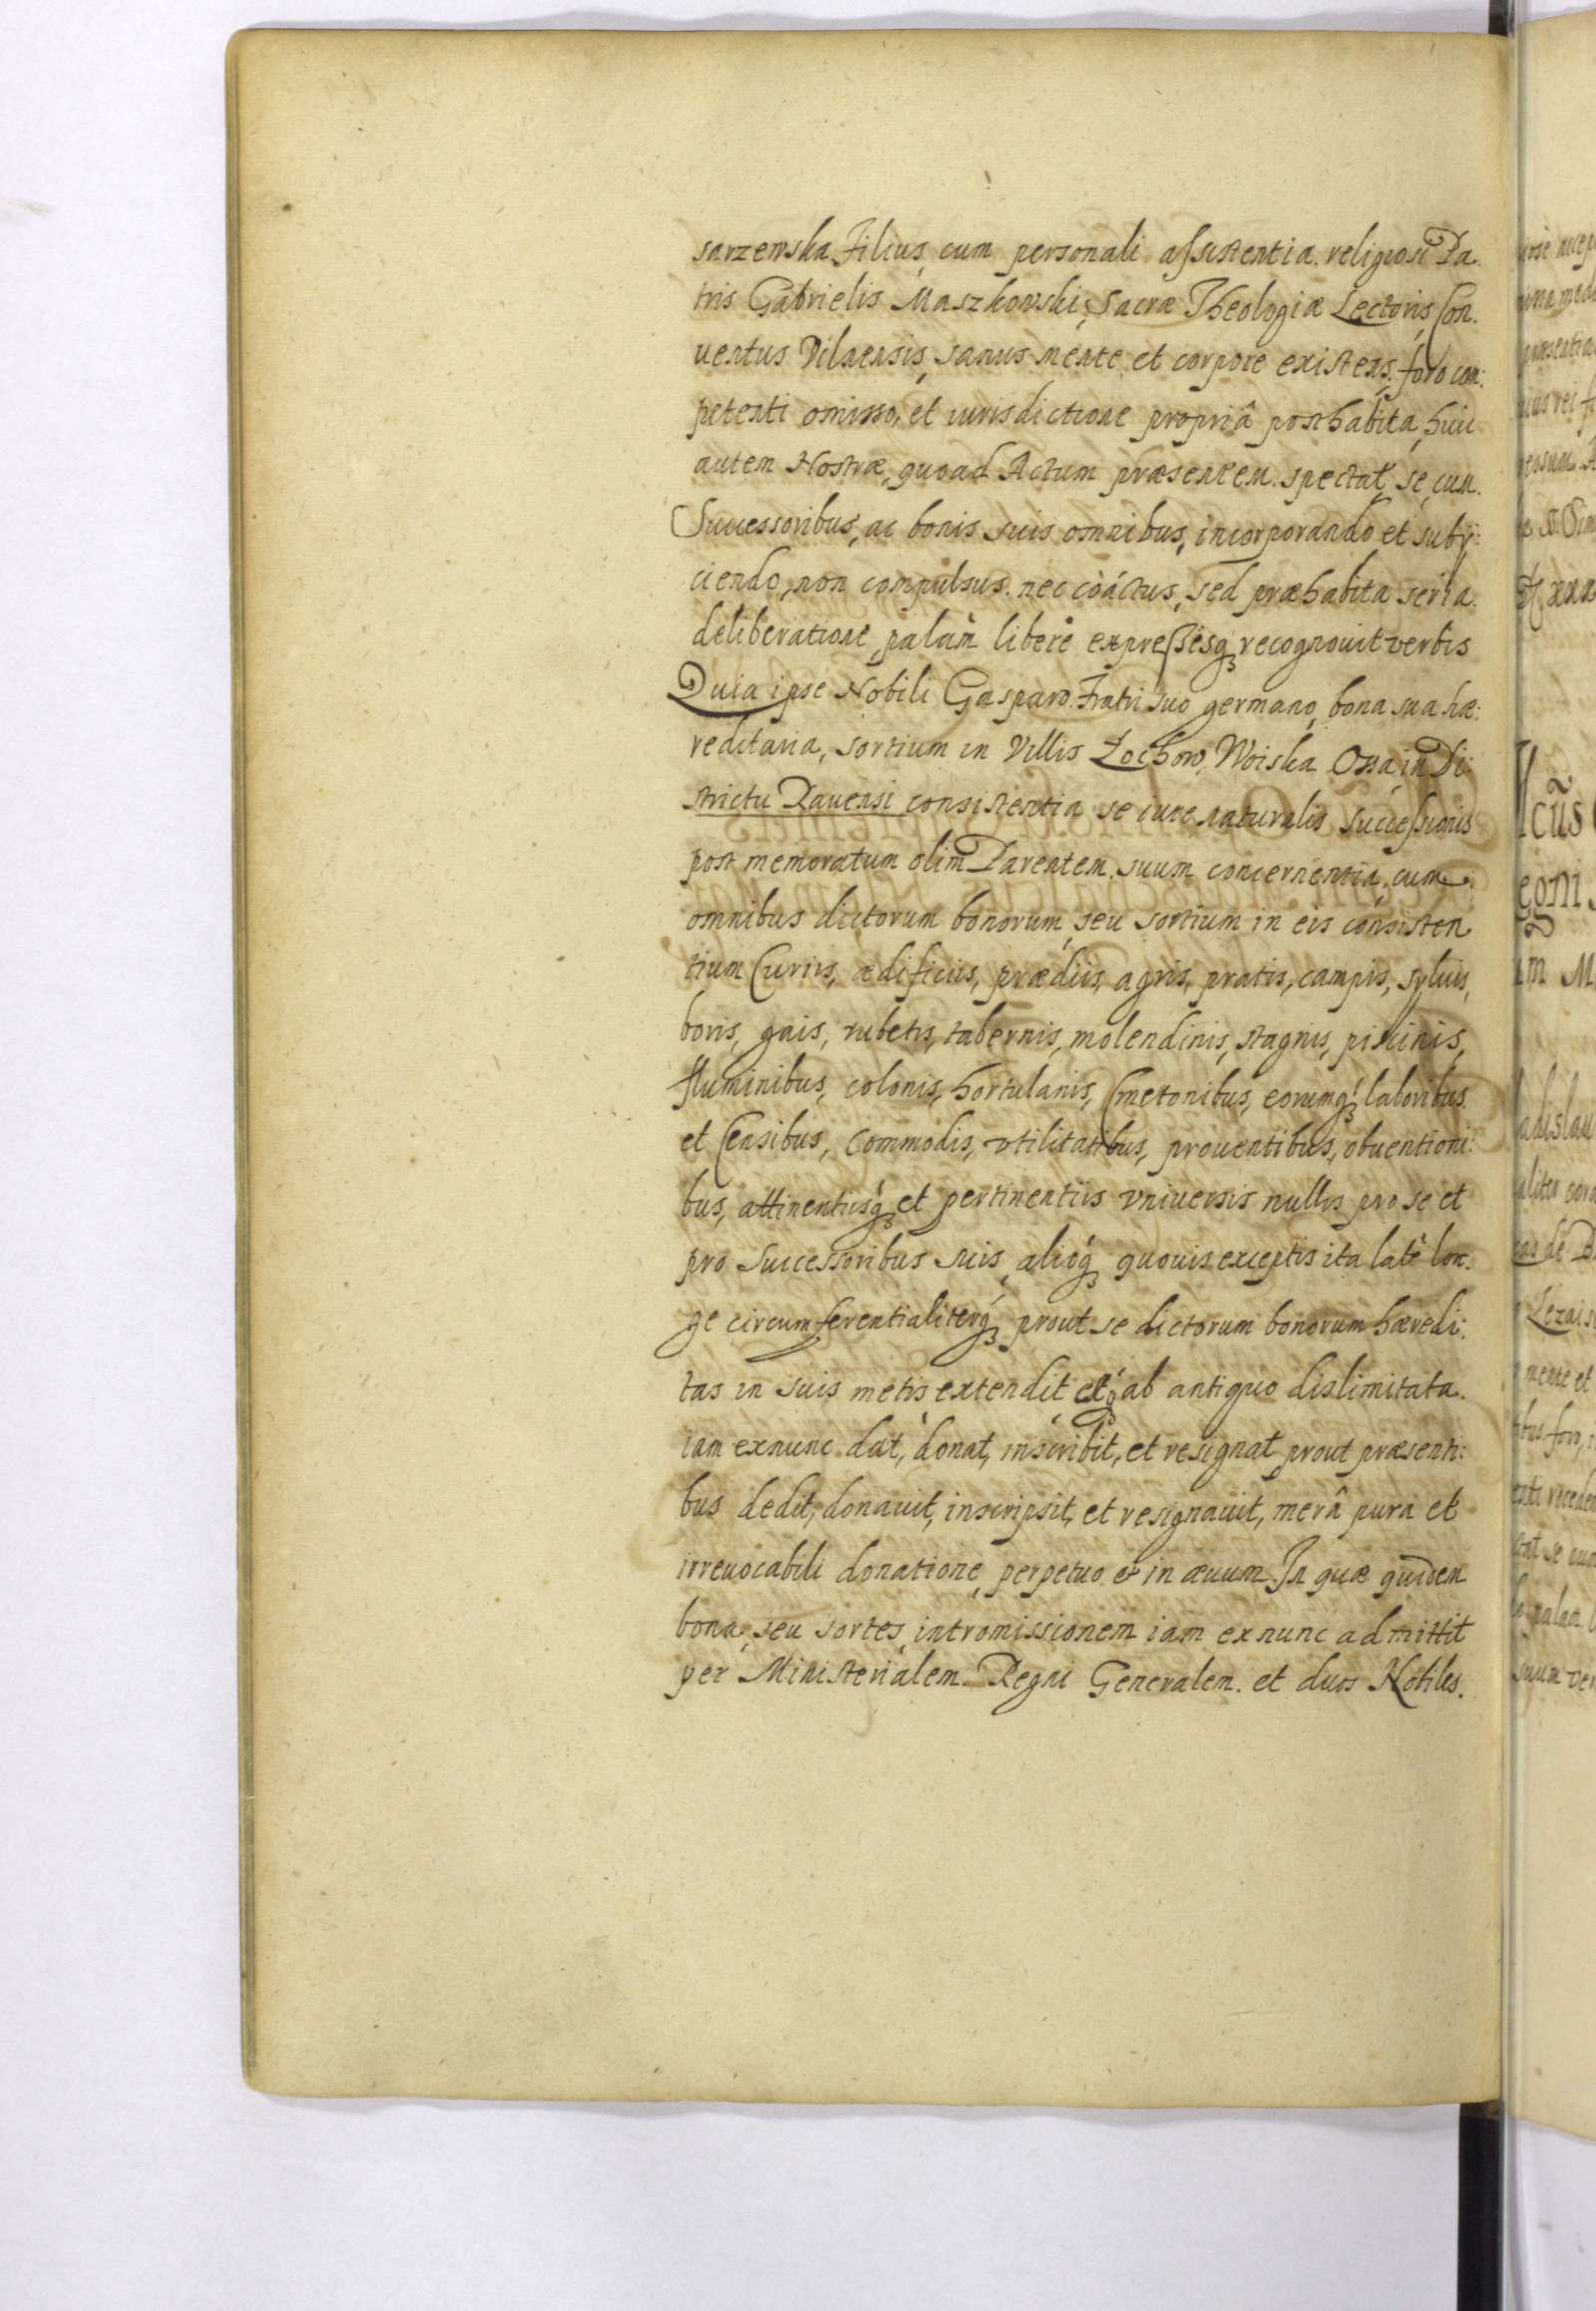 sarzewska Filius, cum personali assistentia religiosi Pa.
tris Gabrielis Maszkowski, Sacræ Theologiæ Lectoris Con.
uentus Vilnensis, sanus mente et corpore existens, foro com:
petenti omisso, et iurisdictione propriâ posthabita, huic
autem Nostræ, quoad Actum præsentem spectat, se, cum
Successoribus, ac bonis suis omnibus, incorporando et subij:
ciendo, non compulsus nec coáctus, sed præhabita seria
deliberatione, palàm liberè expreßèsq3 recognouit verbis
Quia ipse Nobili Gasparo Fratri suo germano, bona sua hæ:
reditaria, sortium in Villis Łochow, Woiska Ossa in Di:
strictu Rauensi consistentia se iure naturalis successionis
post memoratum olim Parentem suum concernentia, cum
omnibus dictorum bonorum, seu sortium in eis consisten
tium Curiis, ædificiis, prædiis, agris, pratis, campis, syluis,
boris, gais, rubetis, tabernis, molendinis, stagnis, piscinis,
fluminibus, colonis, hortulanis, Cmetonibus, eorumq3 laboribus
et Censibus, Commodis, vtilitatibus, prouentibus, obuentioni:
bus, attinentiisq3 et pertinentiis vniuersis nullis pro se et
pro Successoribus suis, alioq3 quouis exceptis ita latè lon:
ge circumferentialiterq3 prout se dictorum bonorum hæredi:
tas in suis metis extendit estq3 ab antiquo dislimitata
iam exnunc dat, donat, inscribit, et resignat prout præsenti:
bus dedit, donauit, inscripsit, et resignauit, merâ pura et
irreuocabili donatione, perpetuo et in æuum. In quæ quidem
bona, seu sortes, intromissionem iam exnunc admittit
per Ministerialem Regni Generalem et duos Nobiles.